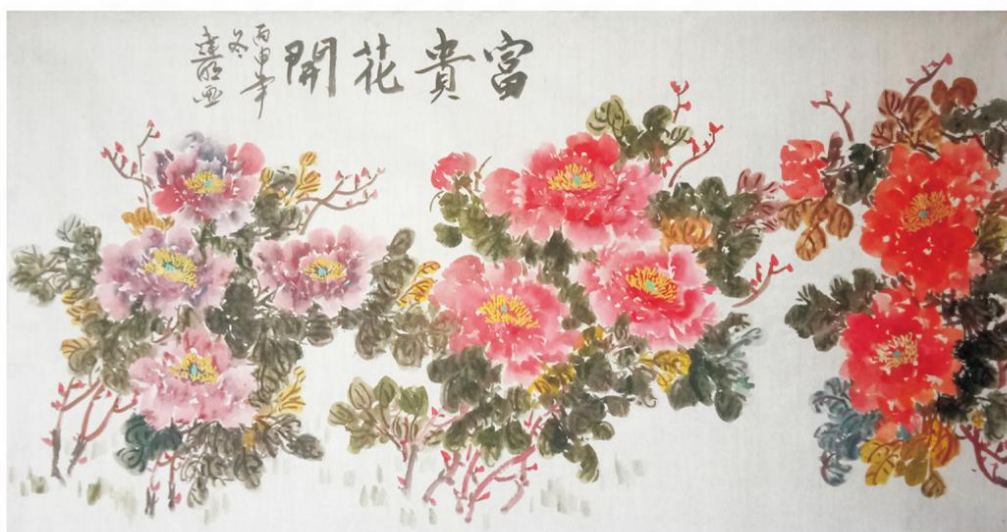 富貴花開
丙申年
冬
画